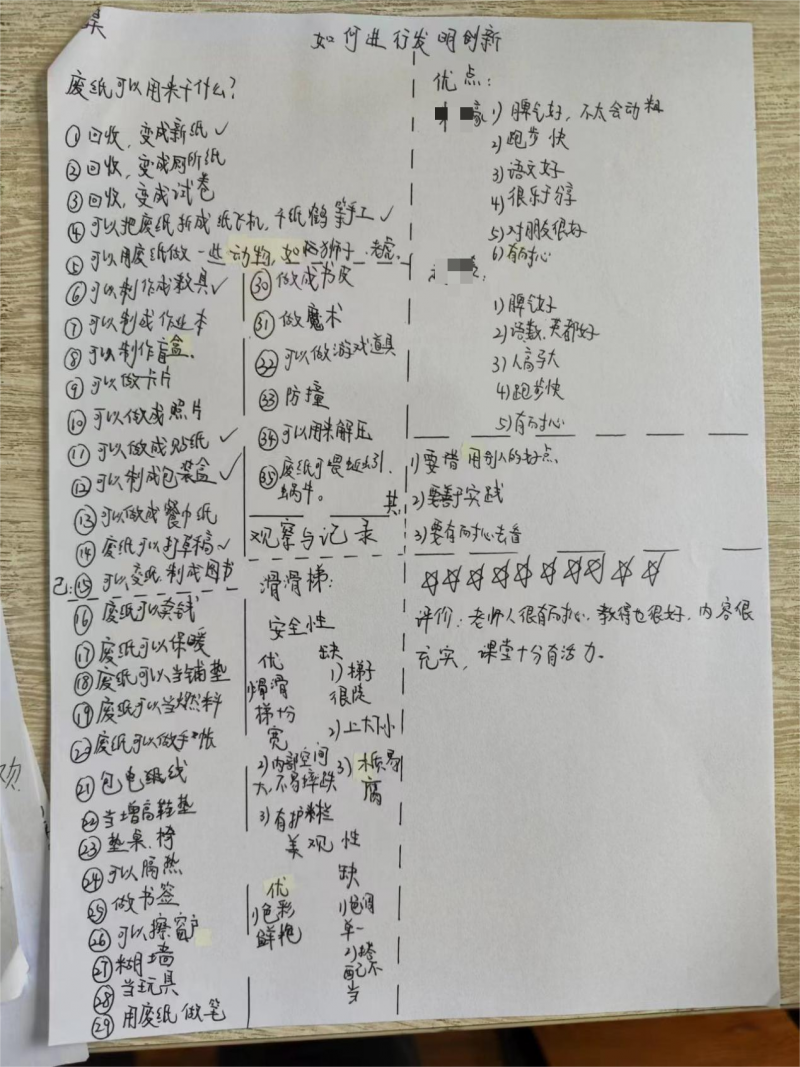 如何进行发明创新
废纸可以用来干什么?
①回收,变成新纸✓
②回收,变成厕所纸
③回收,变成试卷
④可以把废纸折成纸飞机,千纸鹤等手工✓
⑤可以用废纸做一些动物,如恐狮子.老虎.
⑥可以制作成教具✓
⑦可以制成作业本
⑧可以制作盲盒.
⑨可以做卡片
⑩可以做成照片
⑪可以做成贴纸✓
⑫可以制成包装盒✓
⑬可以做成餐巾纸
⑭废纸可以打草稿✓
己:⑮可以变纸.制成图书
⑯废纸可以卖钱
⑰废纸可以保暖
⑱废纸可以当铺垫
⑲废纸可以当燃料
⑳废纸可以做手帐
㉑包电线
㉒当增高鞋垫
㉓垫桌.椅
㉔可以隔热
㉕做书签
㉖可以擦窗户
㉗糊墙
㉘当玩具
㉙用废纸做笔
㉚做成书皮
㉛做魔术
㉜可以做游戏道具
㉝防撞
㉞可以用来解压
㉟废纸可喂蚯蚓.
蜗牛。
共:
观察与记录
滑滑梯:
安全性
优
滑滑
梯十份
宽
2)内部空间
大,不易摔跌
3)有护栏
缺
1)梯子
很陡
2)上大下小
3)木质易
腐
美观性
优
1)色彩
鲜艳
缺
1)色调
单一
2)搭
配不
当
优点:
豪1)脾气好,不太会动粗
2)跑步快
3)语文好
4)很乐于分享
5)对朋友很好
6)有耐心
1)脾气好
2)语数.英都好
3)人高子大
4)跑步快
5)有耐心
1)要借用别人的好点
2)要善于实践
3)要有耐心去看
☆☆☆☆☆☆☆☆☆☆
评价:老师人很有耐心.教得也很好.内容很
充实,课堂十分有活力。